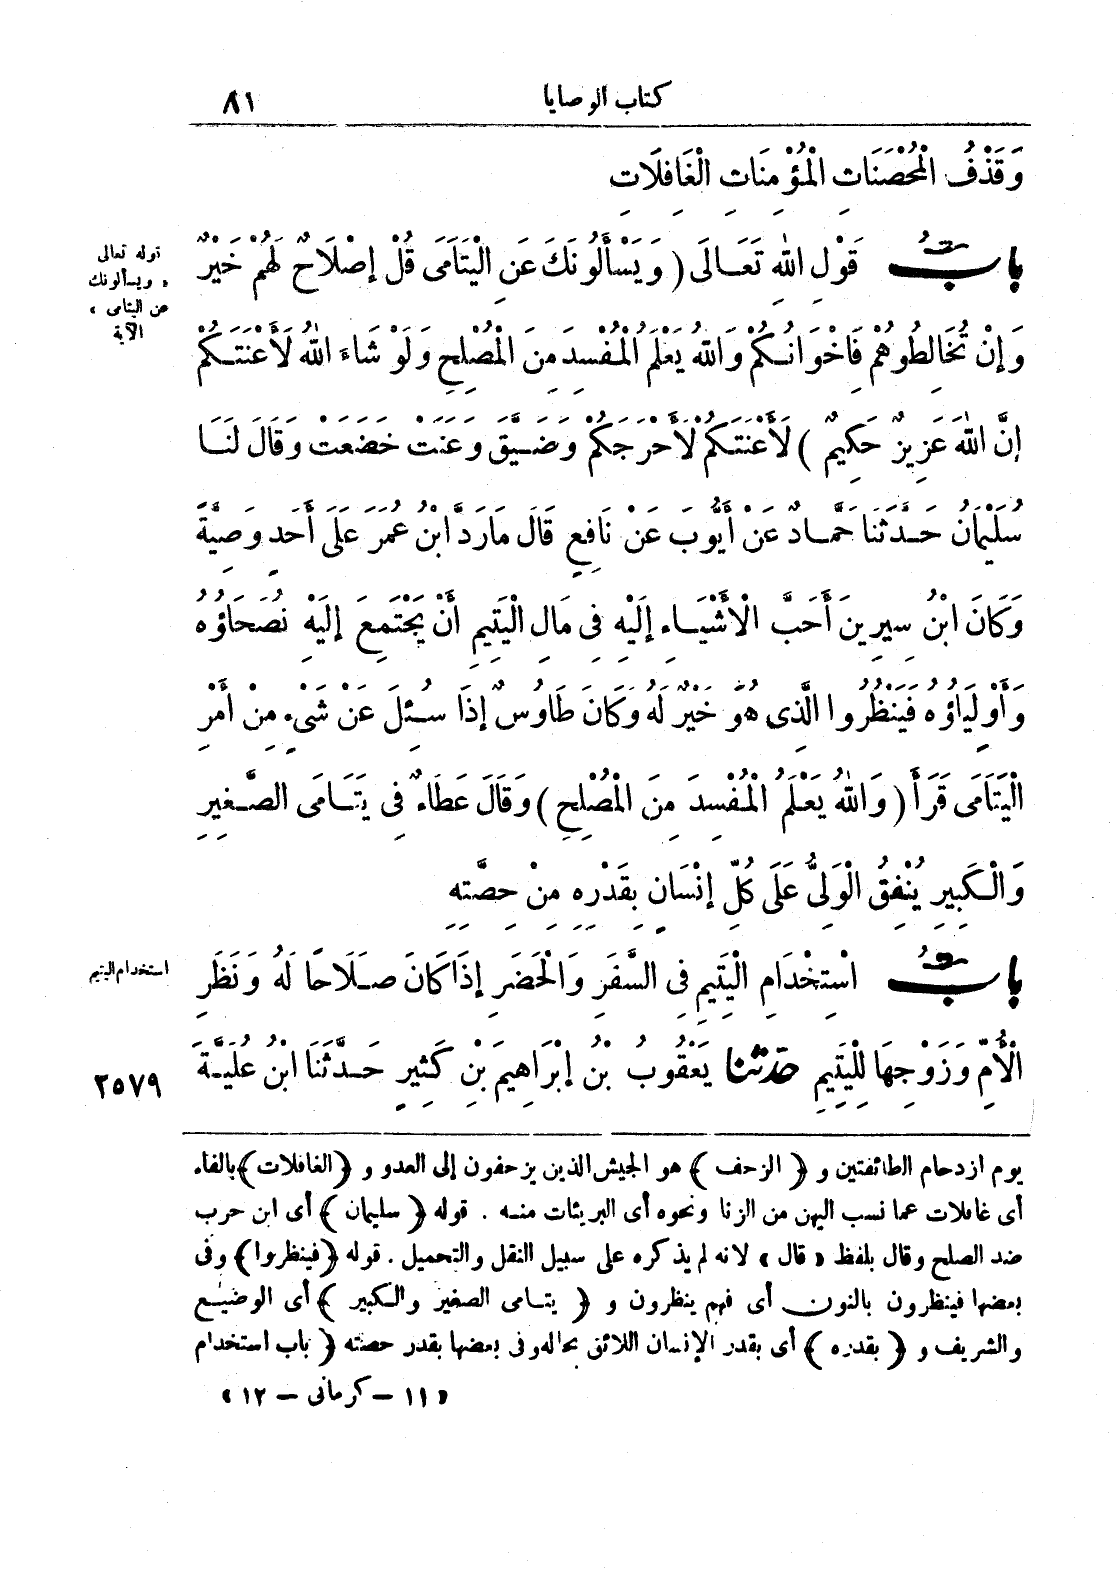 كتاب الوصايا ٨١
وَقَذْفُ الْمُحْصَنَاتِ الْمُؤْمِنَاتِ الْغَافِلَاتِ
بَابُ قَوْلِ اللهِ تَعَالَى ( وَيَسْأَلُونَكَ عَنِ الْيَتَامَى قُلْ إِصْلَاحٌ لَهُمْ خَيْرٌ
قوله تعالى
« ويسألونك
عن اليتامى »
الآية
وَإِنْ تُخَالِطُوهُمْ فَإِخْوَانُكُمْ وَاللهُ يَعْلَمُ الْمُفْسِدَ مِنَ الْمُصْلِحِ وَلَوْ شَاءَ اللهُ لَأَعْنَتَكُمْ
إِنَّ اللهَ عَزِيزٌ حَكِيمٌ ) لَأَعْنَتَكُمْ لَأَحْرَجَكُمْ وَضَيَّقَ وَعَنَتْ خَضَعَتْ وَقَالَ لَنَا
سُلَيْمَانُ حَدَّثَنَا حَمَّادٌ عَنْ أَيُّوبَ عَنْ نَافِعٍ قَالَ مَا رَدَّ ابْنُ عُمَرَ عَلَى أَحَدٍ وَصِيَّةً
وَكَانَ ابْنُ سِيرِينَ أَحَبَّ الْأَشْيَاءِ إِلَيْهِ فِي مَالِ الْيَتِيمِ أَنْ يَجْتَمِعَ إِلَيْهِ نُصَحَاؤُهُ
وَأَوْلِيَاؤُهُ فَيَنْظُرُوا الَّذِي هُوَ خَيْرٌ لَهُ وَكَانَ طَاوُسٌ إِذَا سُئِلَ عَنْ شَيْءٍ مِنْ أَمْرِ
الْيَتَامَى قَرَأَ ( وَاللهُ يَعْلَمُ الْمُفْسِدَ مِنَ الْمُصْلِحِ ) وَقَالَ عَطَاءٌ فِي يَتَامَى الصَّغِيرِ
وَالْكَبِيرِ يُنْفِقُ الْوَلِيُّ عَلَى كُلِّ إِنْسَانٍ بِقَدْرِهِ مِنْ حِصَّتِهِ
بَابُ اسْتِخْدَامِ الْيَتِيمِ فِي السَّفَرِ وَالْحَضَرِ إِذَا كَانَ صَلَاحًا لَهُ وَنَظَرِ
استخدام اليتيم
الْأُمِّ وَزَوْجِهَا لِلْيَتِيمِ حَدَّثَنَا يَعْقُوبُ بْنُ إِبْرَاهِيمَ بْنِ كَثِيرٍ حَدَّثَنَا ابْنُ عُلَيَّةَ
٢٥٧٩
يوم ازدحام الطائفتين و ﴿ الزحف ﴾ هو الجيش الذين يزحفون إلى العدو و ﴿الغافلات﴾ بالفاء
أى غافلات عما نسب اليهن من الزنا ونحوه أى البريئات منه . قوله ﴿ سليمان ﴾ أى ابن حرب
ضد الصلح وقال بلفظ « قال » لانه لم يذكره على سبيل النقل والتحميل . قوله ﴿فينظروا﴾ وفى
بعضها فينظرون بالنون أى فهم ينظرون و ﴿ يتامى الصغير والكبير ﴾ أى الوضيع
والشريف و ﴿ بقدره ﴾ أى بقدر الإنسان اللائق بحاله وفى بعضها بقدر حصته ﴿ باب استخدام
« ١١ – كرمانى – ١٢ »